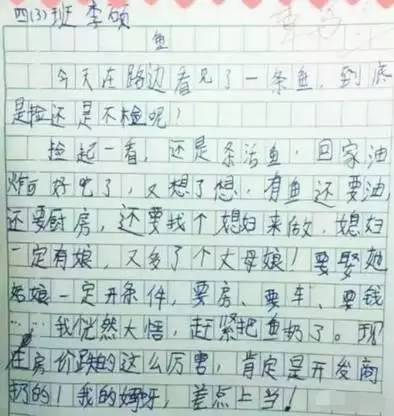 四(3)班 李硕
鱼
今天在路边看见了一条鱼，到底
是捡还是不捡呢！
捡起一看，还是条活鱼，回家油
炸可好吃了，又想了想，有鱼还要油，
还要厨房，还要找个媳妇来做，媳妇
一定有娘，又多了个丈母娘！要娶她
姑娘一定开条件，要房、要车、要钱
……我恍然大悟，赶紧把鱼奶了。现
在房价跌的这么厉害，肯定是开发商
扔的！我的妈呀，差点上当！